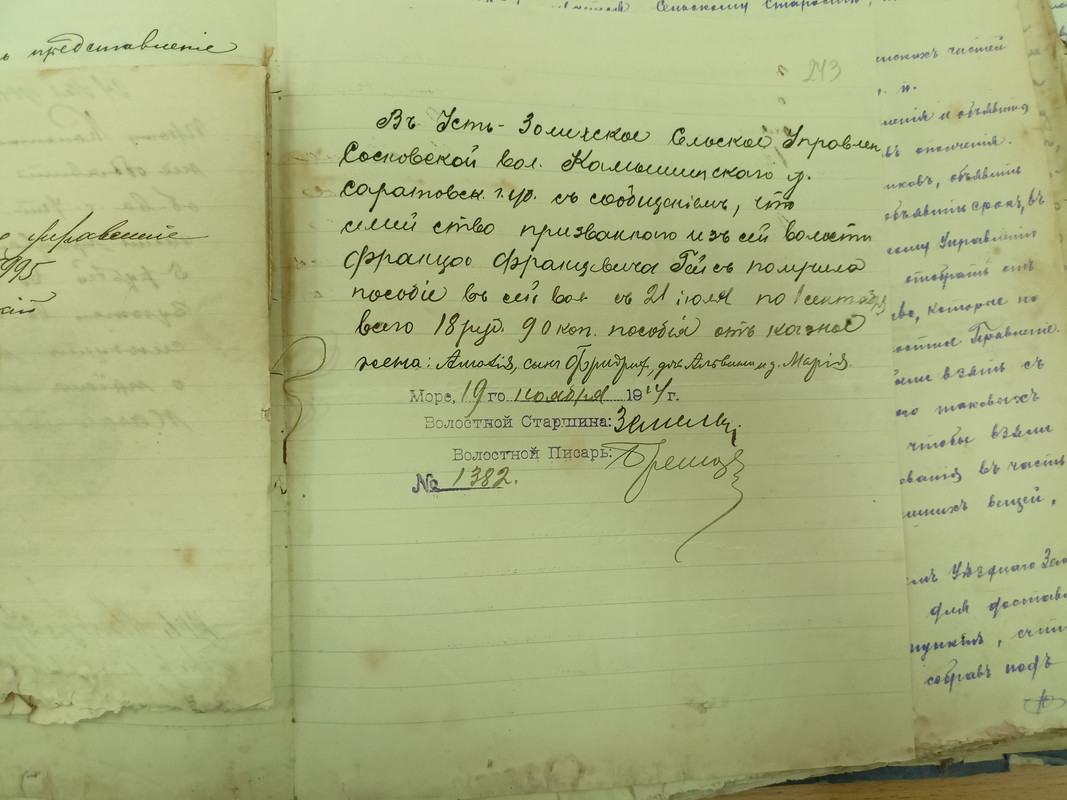 ь представленіе
Сельскому Старостѣ,
243
Въ Усть-Золихское Сельское Управлен
Сосновской вол. Камышинскаго у.
Саратовск. губ. съ сообщеніемъ, что
семейство призваннаго изъ сей волости
Францъ Францевича Гейсъ получила
пособіе въ сей вол. съ 21 іюля по 1 сентября
всего 18 руб. 90 коп. пособія отъ казны
жена: Амалія, сынъ Фридрих, дочь Альвина и д. Марія.
Море, 19 го ноября 1914 г.
Волостной Старшина:
Волостной Писарь:
№ 1382.
управленіе
995
ай
нскихъ частей
. н.
ленія и объявивъ
въ окончанія.
никовъ, объявить
объявить срокъ, въ
скому Управленію
отобрать отъ
во, которые по
остное Правленіе.
были взять съ
таковыхъ
чтобы взяли
ованія въ часть
шнихъ вещей,
емъ Уѣзднаго Зем
для доставл
пунктъ, счит
собравъ подъ